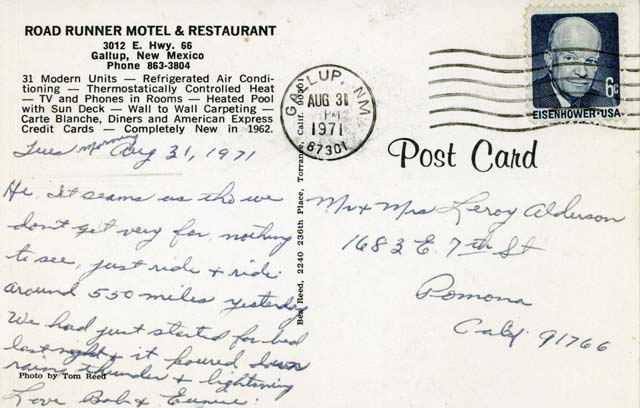 ROAD RUNNER MOTEL & RESTAURANT
3012 E. Hwy. 66
Gallup, New Mexico
Phone 863-3804
31 Modern Units — Refrigerated Air Condi-
tioning — Thermostatically Controlled Heat
— TV and Phones in Rooms — Heated Pool
with Sun Deck — Wall to Wall Carpeting —
Carte Blanche, Diners and American Express
Credit Cards — Completely New in 1962.
Tues morning Aug 31, 1971
Hi, It seams as tho we
don't get very far, nothing
to see, just ride & ride.
around 550 miles yesterday
We had just started for bed
last night & it poured down
rain, thunder & lightning
Love Bob & Eunice.
Photo by Tom Reed
Ben Reed, 2240 236th Place, Torrance, Calif. 90501
GALLUP, NM
AUG 31
PM
1971
87301
6c
EISENHOWER·USA
Post Card
Mr & Mrs Leroy Alderson
1683 E. 7th St
Pomona
Calif. 91766